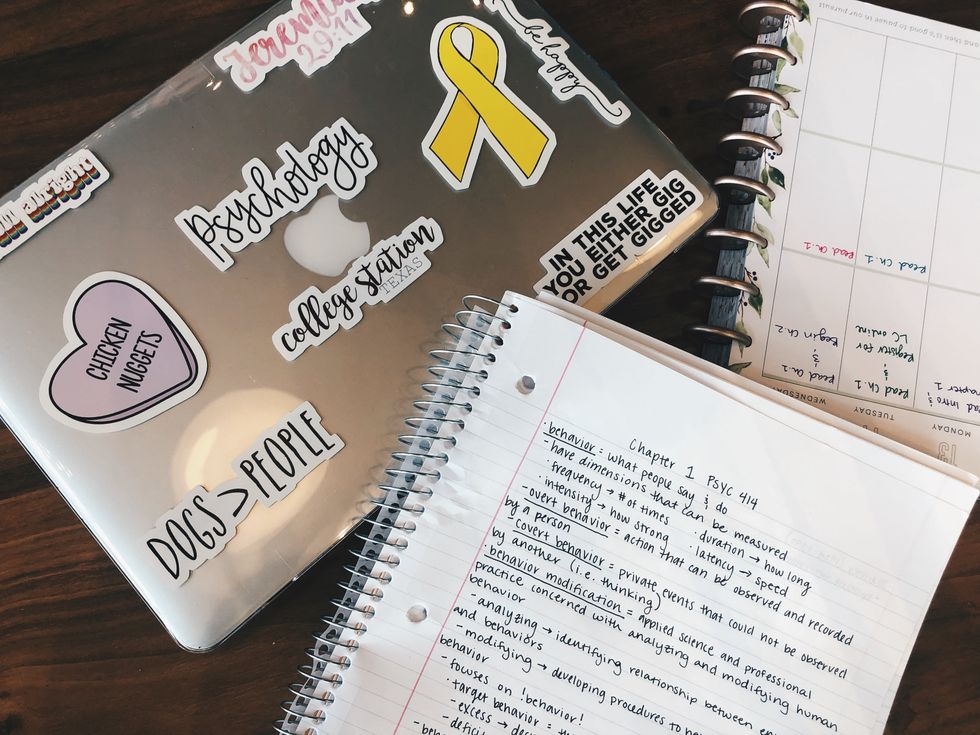 Jeremiah
29:11
be happy
Psychology
college station
TEXAS
IN THIS LIFE
YOU EITHER GIG
OR GET GIGGED
alright
CHICKEN
NUGGETS
DOGS > PEOPLE
and then it's good to pause in our pursuit
Read Ch. 1
Read Ch. 1
Begin Ch. 2
&
Read Ch. 1
Register for
LC online
&
Read Ch. 1
Intro &
Chapter 1
WEDNESDAY
TUESDAY
MONDAY
13
Chapter 1 PSYC 414
· behavior = what people say & do
- have dimensions that can be measured
· frequency → # of times · duration → how long
· intensity → how strong · latency → speed
- overt behavior = action that can be observed and recorded
by a person
- covert behavior = private events that could not be observed
by another (i.e. thinking)
· behavior modification = applied science and professional
practice concerned with analyzing and modifying human
behavior
- analyzing → identifying relationship between
and behaviors
- modifying → developing procedures to
behavior
- focuses on !behavior!
· target behavior =
- excess →